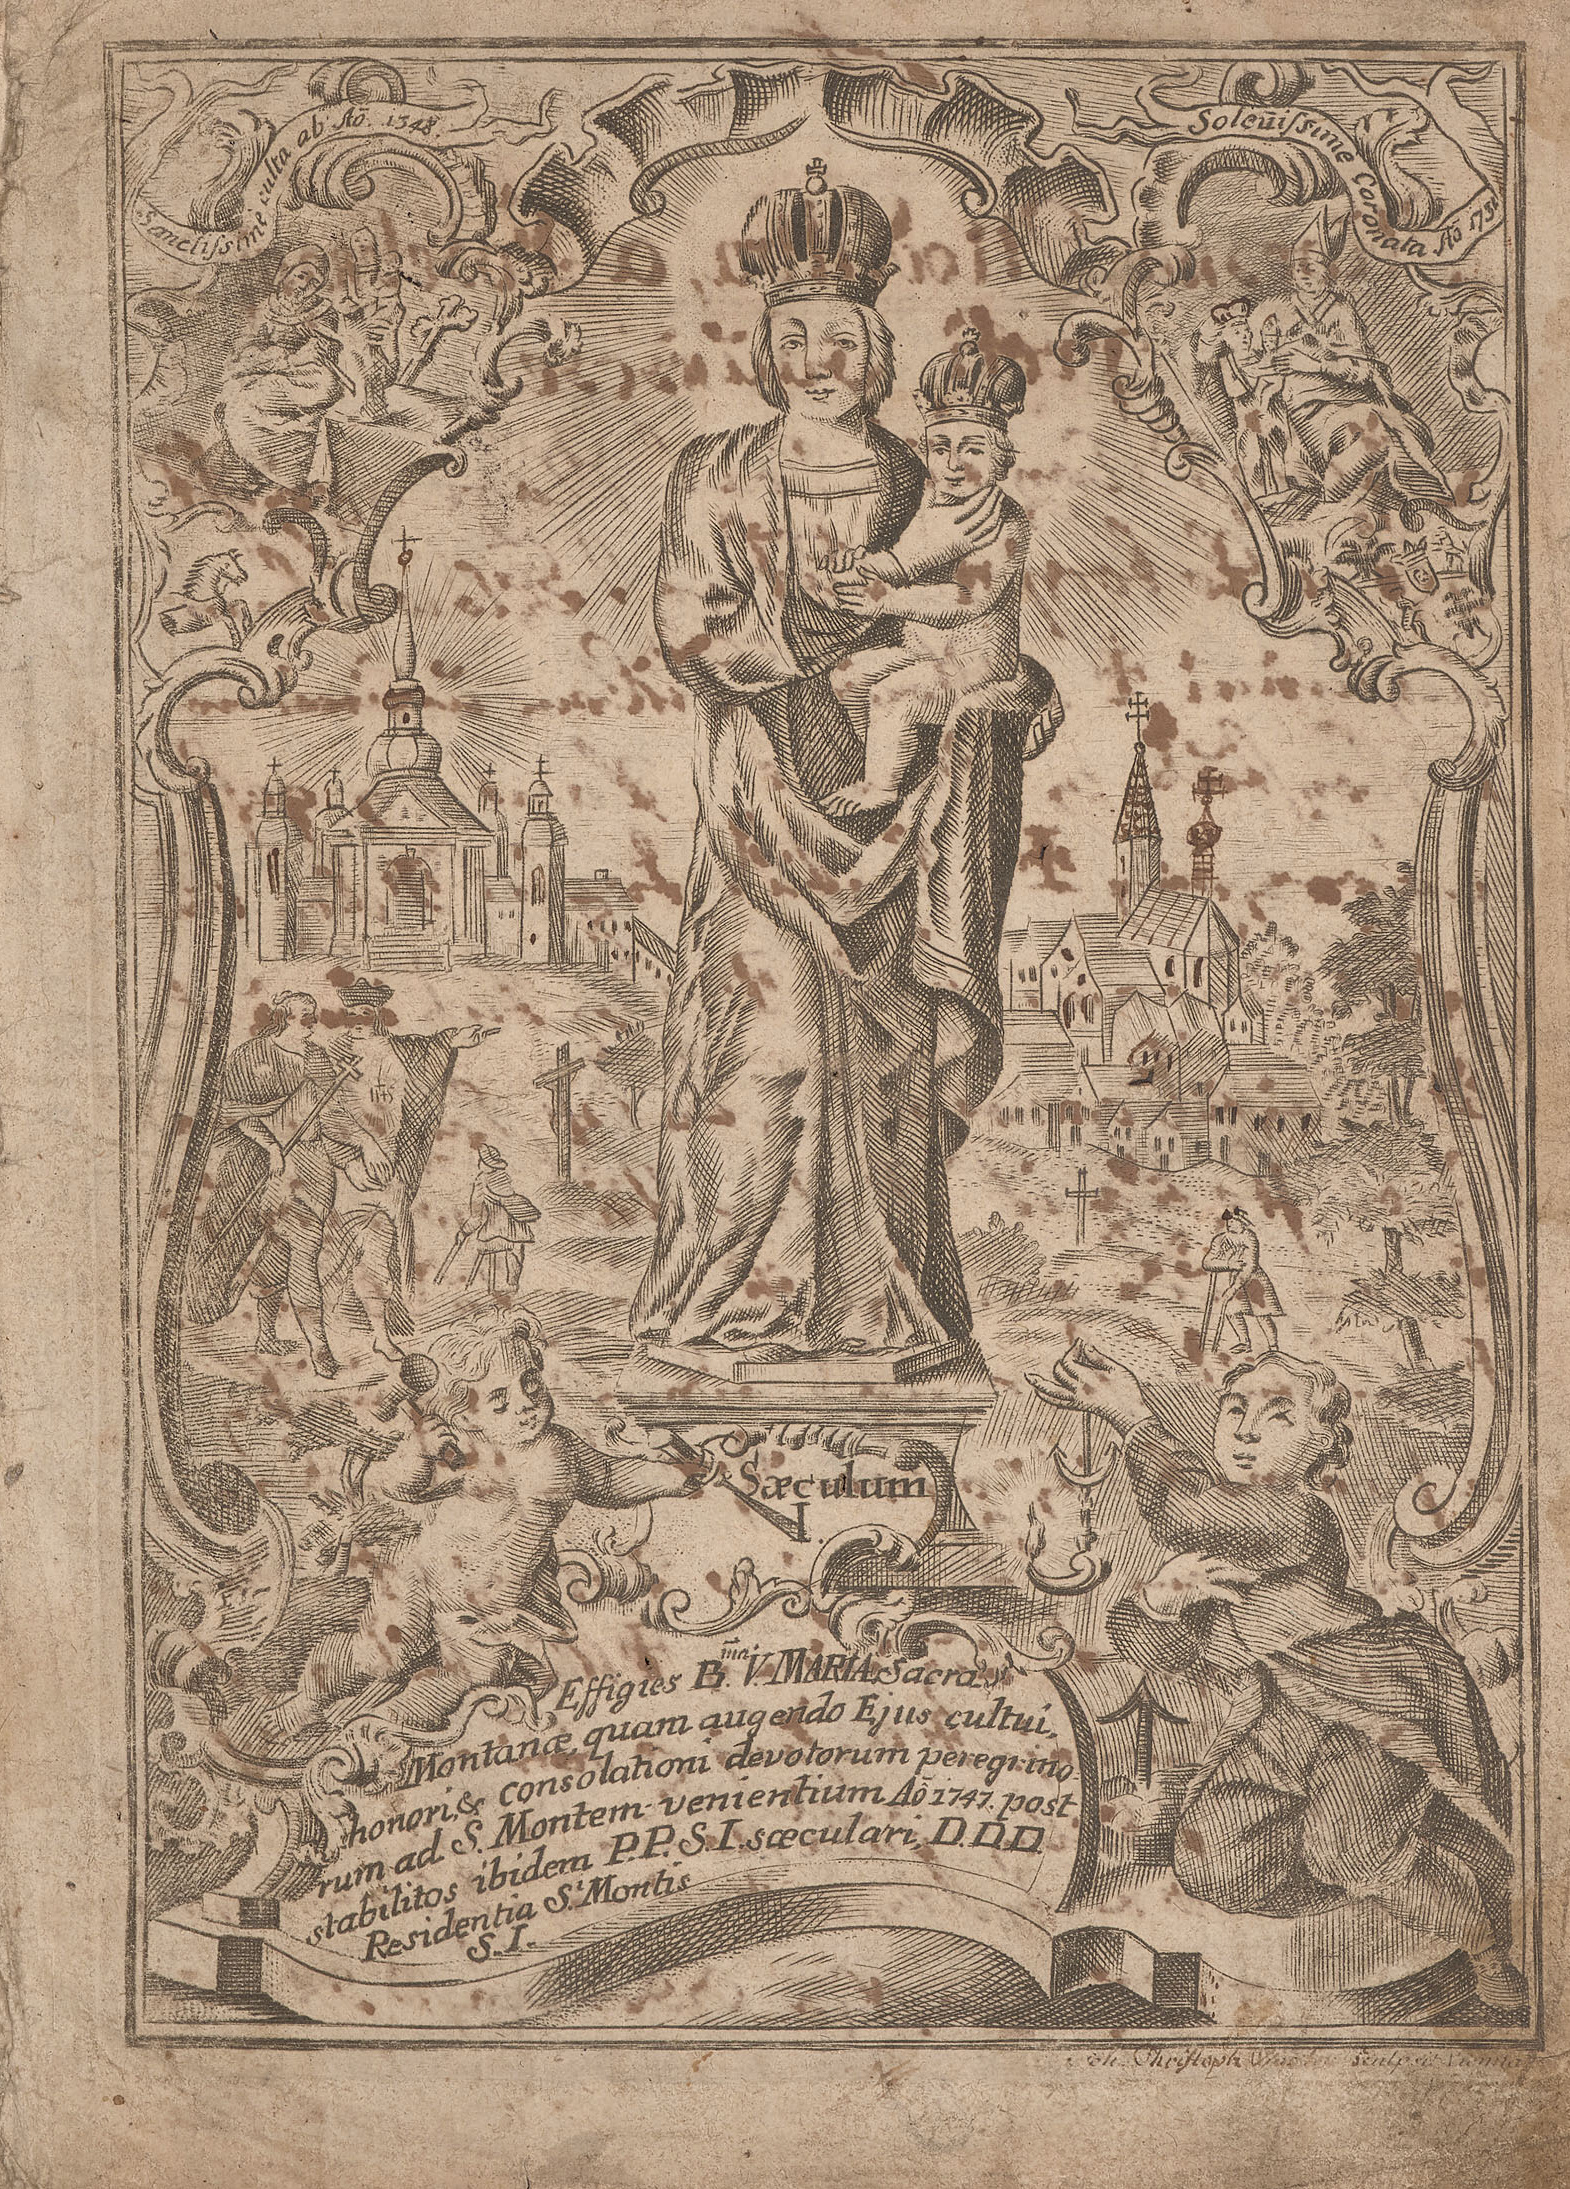 Sanctissime culta ab Aõ. 1348.
Solem̃issime Coronata Aõ 1732
IHS
Sæculum
I.
Effigies B.mæ V. MARIÆ Sacra
Montanæ, quam augendo Ejus cultui,
honori, & consolationi devotorum peregrino-
rum ad S. Montem venientium Aõ 1747. post
stabilitos ibidem P.P.S.I. sæculari, D.D.D.
Residentia S.i Montis
S.I.
Joh. Christoph sculpsit Viennæ